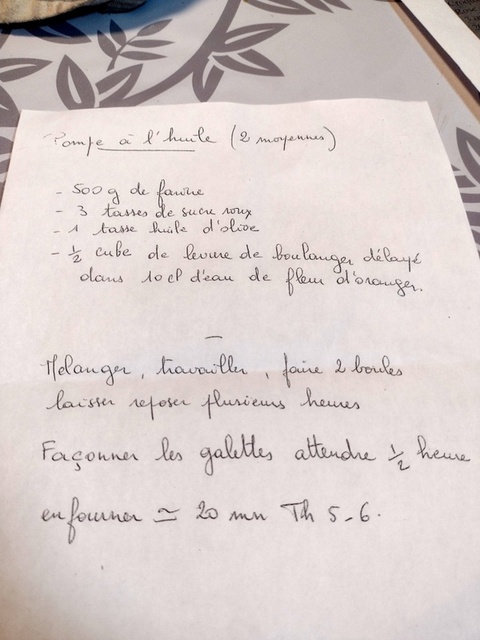 Pompe à l'huile (2 moyennes)
- 500 g de farine
- 3 tasses de sucre roux
- 1 tasse huile d'olive
- ½ cube de levure de boulanger délayé
dans 10 cl d'eau de fleur d'oranger.
—
Mélanger, travailler, faire 2 boules
laisser reposer plusieurs heures
Façonner les galettes attendre ½ heure
enfourner ≃ 20 mn Th 5-6.